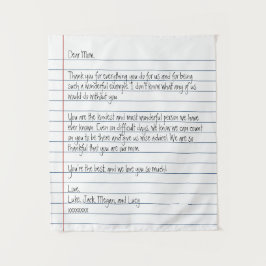 Dear Mom,
Thank you for everything you do for us and for being
such a wonderful example. I don't know what any of us
would do without you.
You are the kindest and most wonderful person we have
ever known. Even on difficult days, we know we can count
on you to be there and give us wise advice! We are so
thankful that you are our mom.
You're the best and we love you so much!
Love,
Luke, Jack, Megan, and Lucy
xoxoxoxo